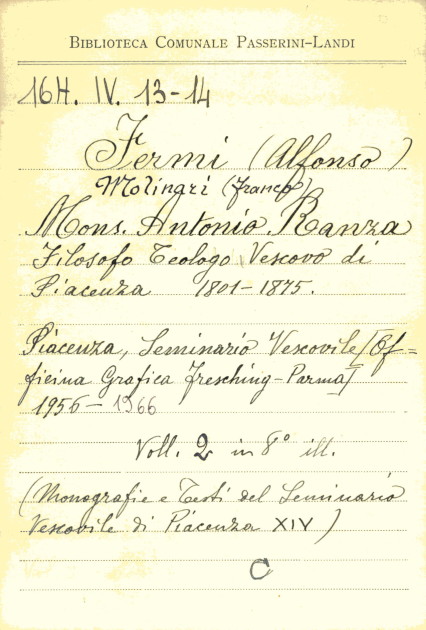 BIBLIOTECA COMUNALE PASSERINI-LANDI
16H. IV. 13-14
Fermi (Alfonso)
Molinari (Franco)
Mons. Antonio Ranza
Filosofo Teologo Vescovo di
Piacenza 1801-1875.
Piacenza, Seminario Vescovile [Of=
ficina Grafica Fresching-Parma]
1956-1966
Voll. 2 in 8° ill.
(Monografie e Testi del Seminario
Vescovile di Piacenza XIV)
C